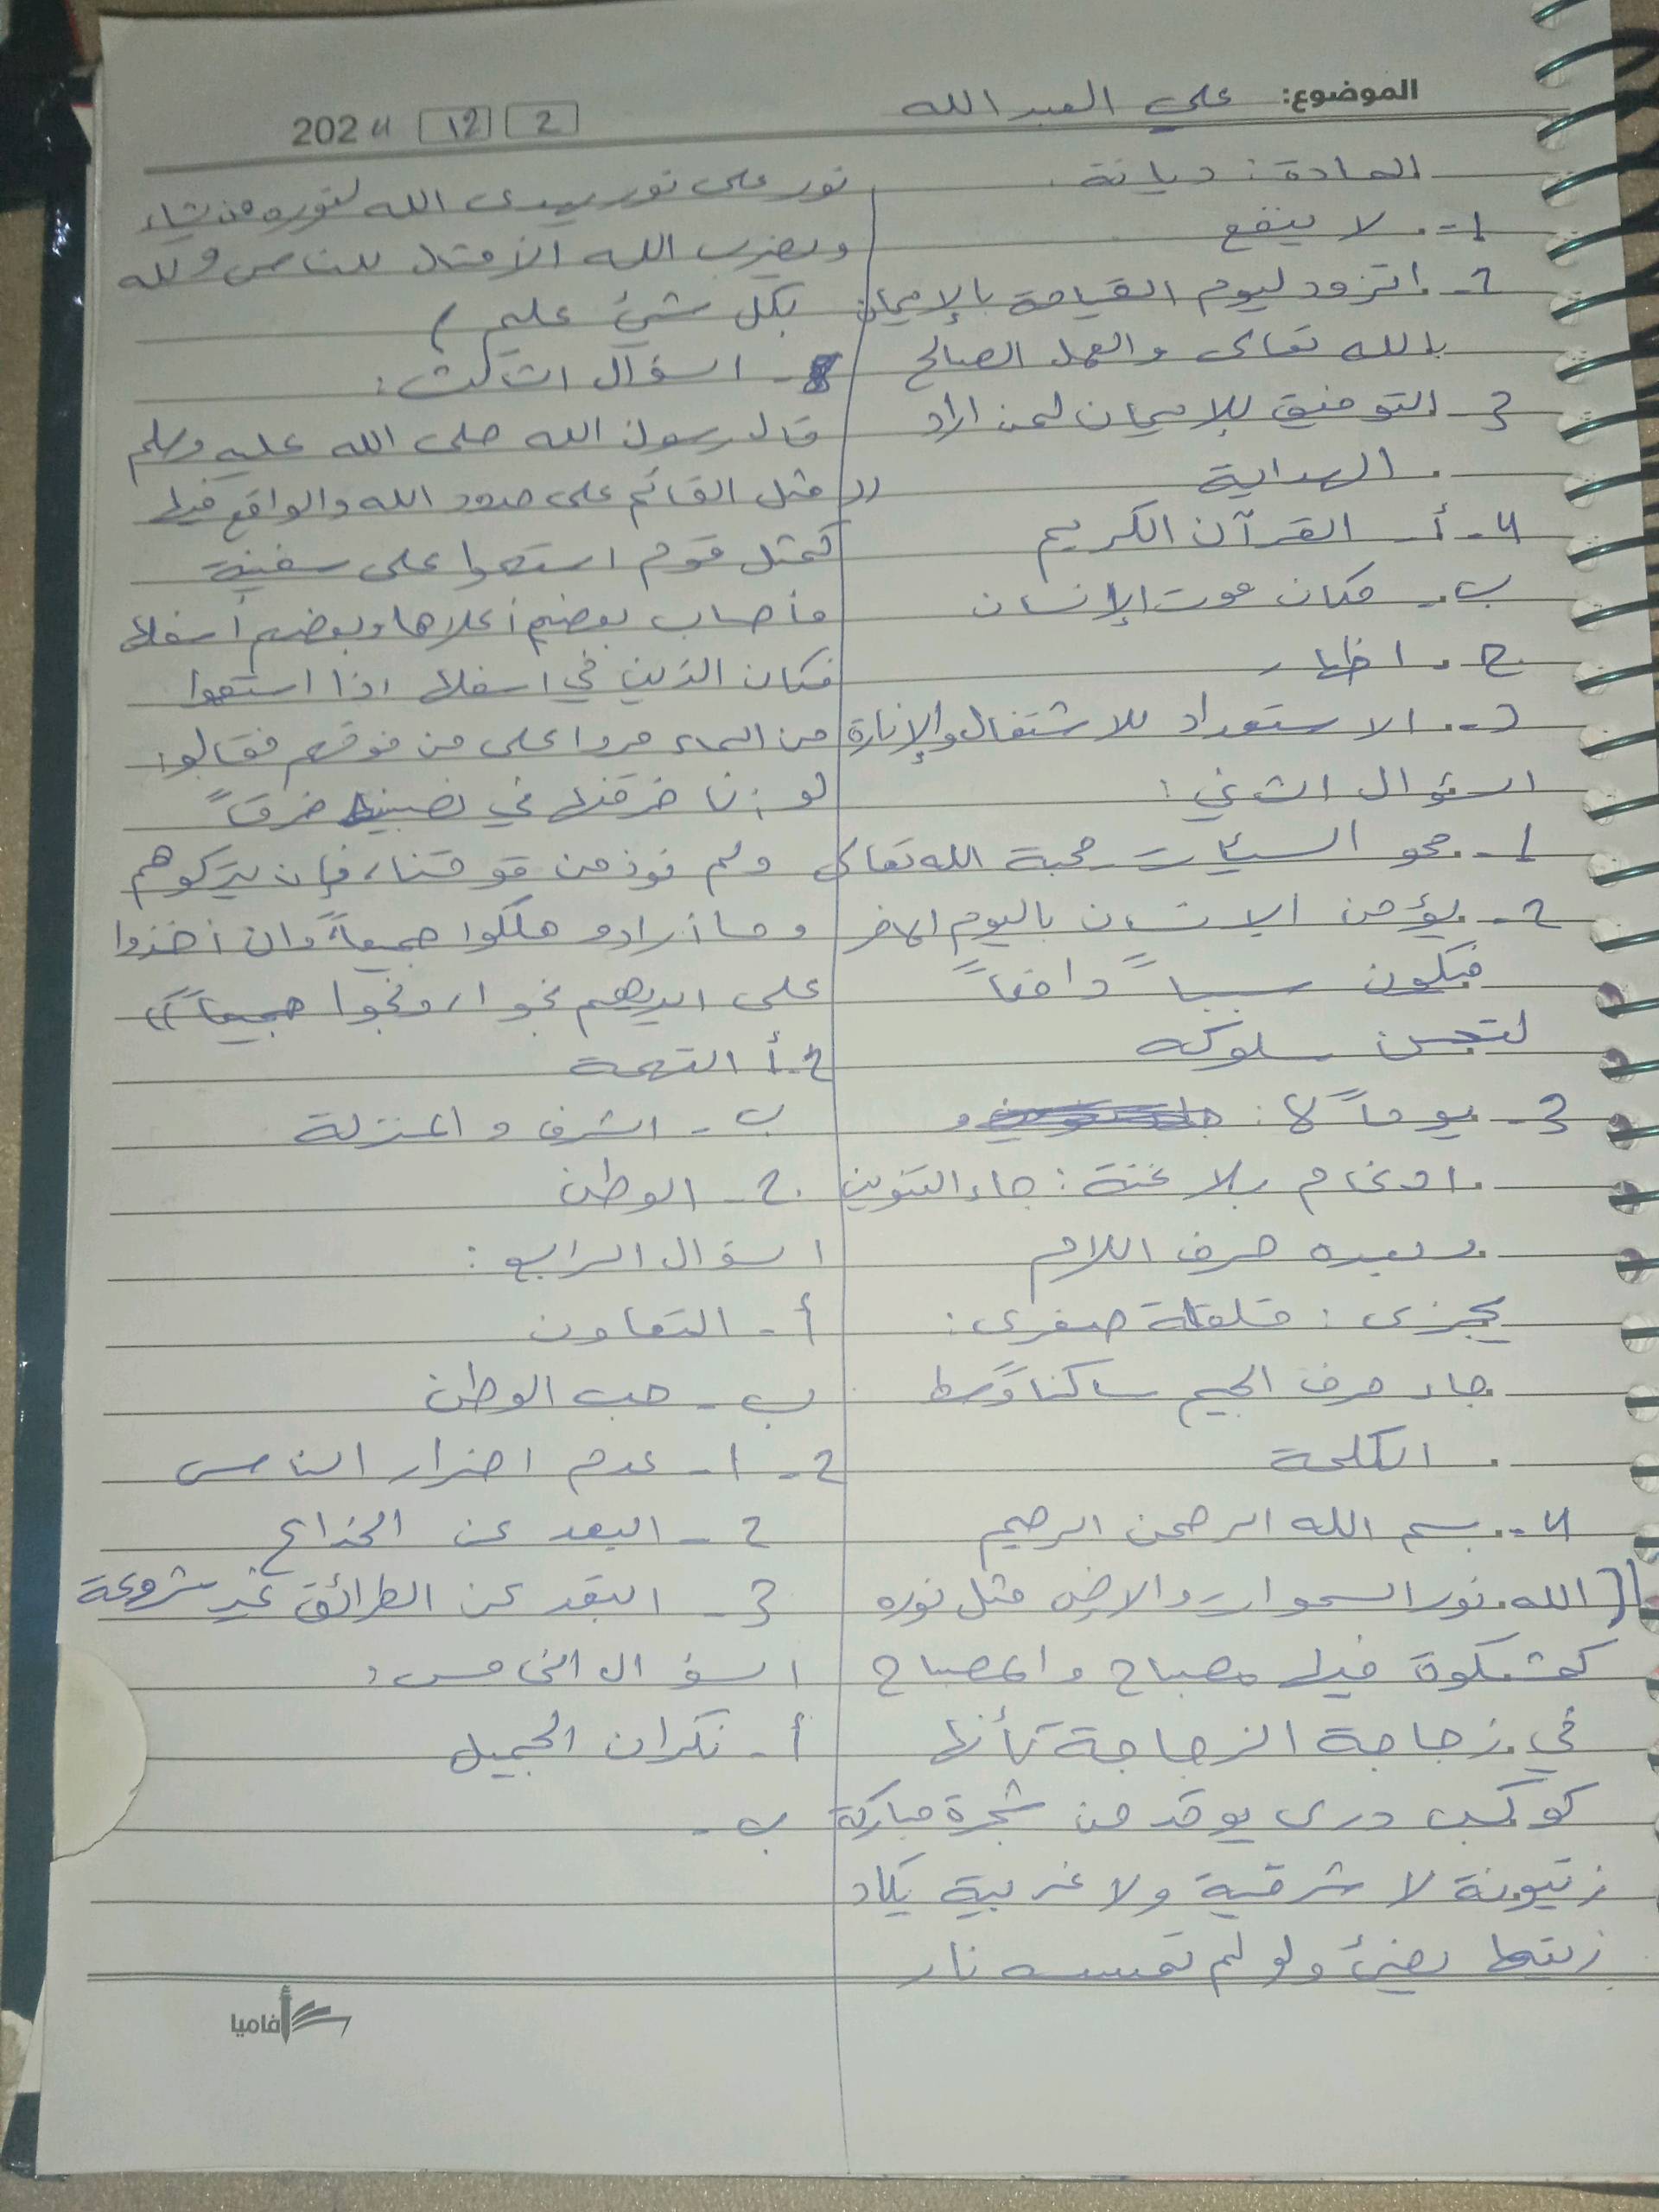 الموضوع: علي العبدالله
2 12 2024
المادة: ديانة.
1-. لا ينفع
2-. اتزود ليوم القيامة بالإيمان
بالله تعالى والعمل الصالح
3- التوفيق للإيمان لمن اراد
. الهداية
4-. أ- القرآن الكريم
ب-. مكان موت الإنسان
ج-. اظهار
د-. الاستعداد للاشتعال والإنارة
السؤال الثاني:
1-. محو السيئات محبة الله تعالى
2-. يؤمن الانسان باليوم الاخر
فيكون سبباً دافعاً
لتحسن سلوكه
3- يوماً لا:
. ادغام بلا غنة: جاء التنوين
. وبعده حرف اللام
يجزى: قلقلة صغرى:
. جاء حرف الجيم ساكناً وسط
. الكلمة
4-. بسم الله الرحمن الرحيم
((الله نور السموات والارض مثل نوره
كمشكوة فيها مصباح والمصباح
في زجاجة الزجاجة كأنها
كوكب درى يوقد من شجرة مباركة
زيتونة لا شرقية ولا غربية يكاد
زيتها يضئ ولو لم تمسسه نار
نور على نور يهدى الله لنوره من يشاء
ويضرب الله الامثال للناس ولله
بكل شيئ عليم )
- السؤال الثالث:
قال رسول الله صلى الله عليه وسلم
((مثل القائم على حدود الله والواقع فيها
كمثل قوم استهموا على سفينة
فأصاب بعضهم أعلاها وبعضهم أسفلها
فكان الذين في اسفلها اذا استقوا
من الماء مروا على من فوقهم فقالوا:
لو أنا خرقنا في نصيبنا خرقاً
ولم نوذ من فوقنا، فإن يتركوهم
وما أرادو هلكوا جميعاً وان أخذوا
على ايديهم نجوا، ونجوا جميعاً))
2-أ التهمة
ب- الشرف والمنزلة
ج- الوطن
السؤال الرابع:
أ- التعاون
ب- حب الوطن
2- 1- عدم اضرار الناس
2- البعد عن الخداع
3- البعد عن الطرائق غير شروعة
السؤال الخامس:
أ- نكران الجميل
ب-
أفاميا